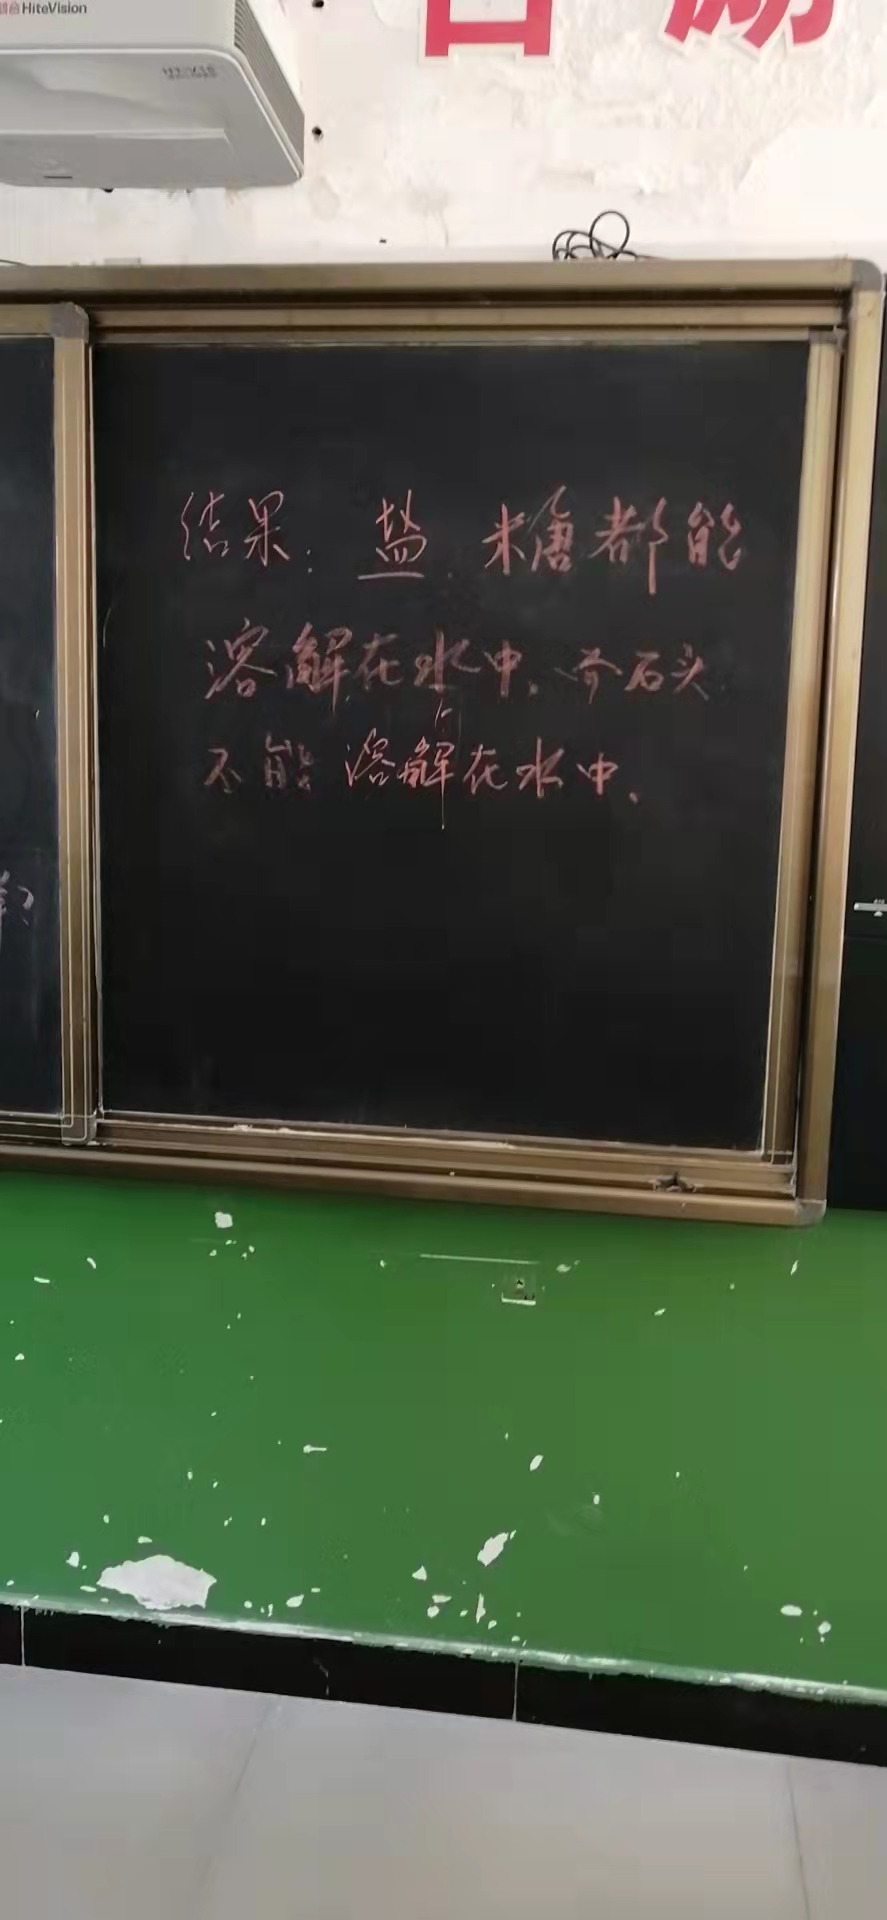 HiteVision
结果：盐、糖都能
溶解在水中、而石头
不能溶解在水中、